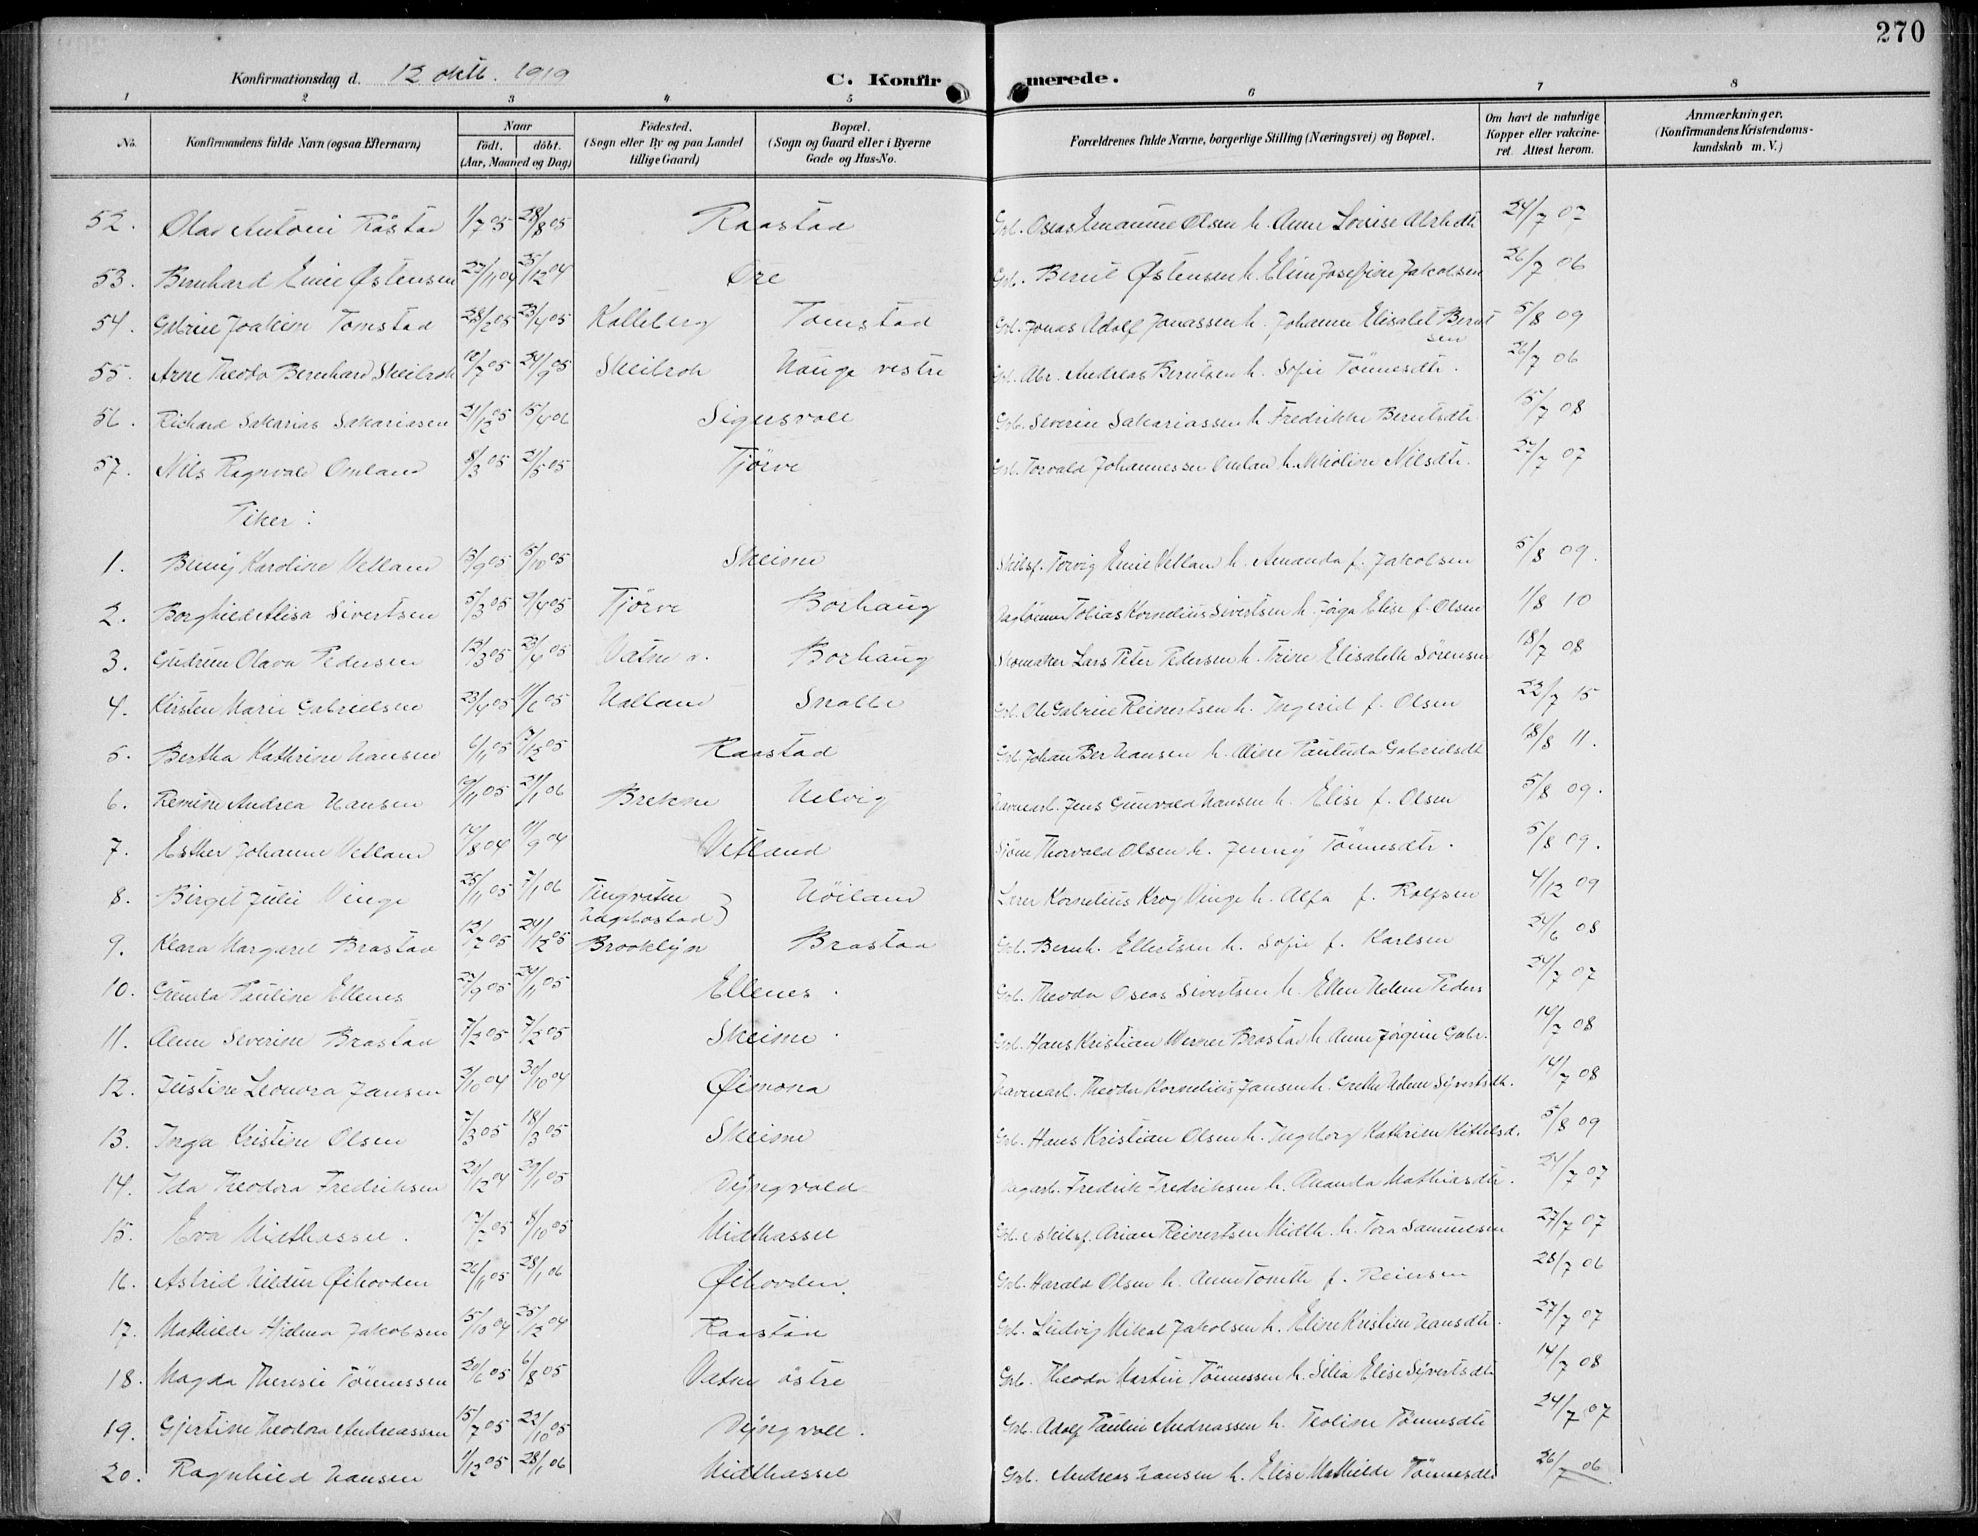 270
Konfirmationsdag d. 12 oktb. 1919 C. Konfirmerede.
1 2 3 4 5 6 7 8
No. Konfirmandens fulde Navn (ogsaa Efternavn) Naar født. døbt. (Aar, Maaned og Dag) Fødested. (Sogn eller By og paa Landet tillige Gaard) Bopæl. (Sogn og Gaard eller i Byerne Gade og Hus-No. Forældrenes fulde Navne, borgerlige Stilling (Næringsvei) og Bopæl. Om havt de naturlige Kopper eller vakcineret. Attest herom. Anmærkninger. (Konfirmandens Kristendomskundskab m. V.)
52. Olav Antoni Råstad 1/7 05 28/8 05 Raastad Grb. Oseas Emanuel Olsen h. Anne Lovise 24/7 07
53. Bernhard Emil Østensen 27/11 04 25/12 04 Øre Grb. Berut Østensen h. Eline Josefine Jakobsen 26/7 06
54. Gabriel Joakim Tomstad 28/2 05 23/4 05 Kalleberg Tomstad Grb. Jonas Adolf Jonassen h. Johanne Elisabet Berntsen 5/8 09
55. Arne Theodor Bernhard Skeibrok 10/7 05 24/9 05 Skeibrok Hauge vestre Grb. Abr. Andreas Berntsen h. Sofie Tönnesdtr. 26/7 06
56. Richard Sakarias Sakariasen 21/12 05 15/4 06 Sigersvoll Grb. Severin Sakariassen h. Fredrikke Berntsdtr 15/7 08
57. Nils Ragnvald Omland 8/3 05 21/5 05 Tjörve Grb. Torvald Johannessen Omlan h. Nilsdtr. 27/7 07
Piker:
1. Benny Karoline Vetland 13/9 05 15/10 05 Skeime Skibsf. Torvig Emil Vetland h. Amanda f. Jakobsen 5/8 09.
2. Borghild Alisa Sivertsen 5/3 05 9/4 05 Tjörve Borhaug Tobias Kornelius Sivertsen h. Elise f. Olsen 1/8 10
3. Gudrun Olava Pedersen 12/3 05 23/4 05 Vatne ö. Borhaug Skomaker Lars Peter Pedersen h. Trine Elisabeth Sörensen 18/7 08
4. Kirsten Marie Gabrielsen 23/4 05 11/6 05 Hatland Snalle Grb. Ole Gabriel Reinertsen h. Ingerid f. Olsen 22/7 15
5. Bertha Kathrine Hansen 6/11 05 17/12 05 Raastad Grb. Johan Ber Hansen h. Aline Paulida Gabrielsdtr 18/8 11.
6. Remine Andrea Hansen 19/11 05 21/1 06 Brekne Helvig Havnearb. Jens Gunvald Hansen h. Elise f. Olsen 5/8 09.
7. Esther Johanne Vetland 14/8 04 11/9 04 Vetland Sjöm. Thorvald Olsen h. Jenny Tönnesdtr. 5/8 09.
8. Birgit Julie Vinge 25/11 05 7/1 06 Tingvatn Hægebostad } Höiland Lærer Kornelius Krog Vinge h. Alfa f. Rolfsen 4/12 09
9. Klara Margaret Brastad 13/7 05 24/12 05 Brooklyn Brastad Grb. Bernh. Ellertsen h. Sofie f. Karlsen 24/6 08
10. Gunda Pauline Ellenes 27/9 05 /11 05 Ellenes. Grb. Theodor Oseas Sivertsen h. Ellen Helene Peders 24/7 07
11. Anne Severine Brastad 7/2 05 7/2 05 Skeime. Grb. Hans Kristian Werner Brastad h. Anne Jörgine Gabr. 14/7 08
12. Justine Leonora Jansen 3/10 04 30/10 04 Øimona Havnearb. Theodor Kornelius Jansen h. Grethe Helene Syvertsdtr. 14/7 08
13. Inga Kristine Olsen 7/3 05 18/3 05 Skeime Grb. Hans Kristian Olsen h. Ingeborg Kathrine Kittelsd. 5/8 09
14. Ida Theodora Fredriksen 20/12 04 29/1 05 Dyngvold Dagarb. Fredrik Fredriksen h. Ananda Mathiasdtr. 24/7 07
15. Eva Midthassel. 17/7 05 8/10 05 Midthassel Grb. & skibsf. Arian Reinertsen Midth. h. Tora Samuelsen 27/7 07
16. Astrid Hildur Øihovden 26/11 05 28/1 06 Øihovden. Grb. Harald Olsen h. Anne Tomthe f. Reiersen 28/7 06
17. Mathilde Hjelma Jakobsen 15/10 04 25/12 04 Raastad Grb. Ludvig Mikal Jakobsen h. Eline Kristine Hansdtr. 27/7 07
18. Magda Theresie Tönnessen 20/6 05 6/8 05 Vatne östre Grb. Theodor Martin Tönnessen h. Silia Elise Syvertsdtr 14/7 08
19. Gjertine Theodora Andreassen 15/7 05 22/10 05 Dyngvoll. Grb. Adolf Paulin Andreassen h. Teoline Tönnesdtr 24/7 07
20. Ragnhild Hansen 1/12 05 28/1 06 Midthassel Grb. Andreas Hansen h. Elise Mathilde Tönnesdtr 26/7 06.